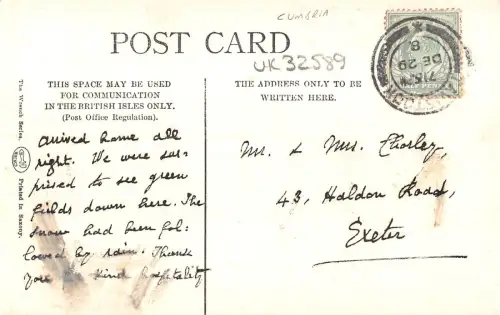 CUMBRIA
POST CARD
UK 32589
THIS SPACE MAY BE USED
FOR COMMUNICATION
IN THE BRITISH ISLES ONLY.
(Post Office Regulation).
THE ADDRESS ONLY TO BE
WRITTEN HERE.
The Wrench Series. Printed in Saxony.
Arrived home all
right. We were sur-
prised to see green
fields down here. The
snow had been fol-
lowed by rain. Thank
you kind hospitality
Mr. & Mrs. Chorley,
43, Haldon Road,
Exeter
DE 29
8